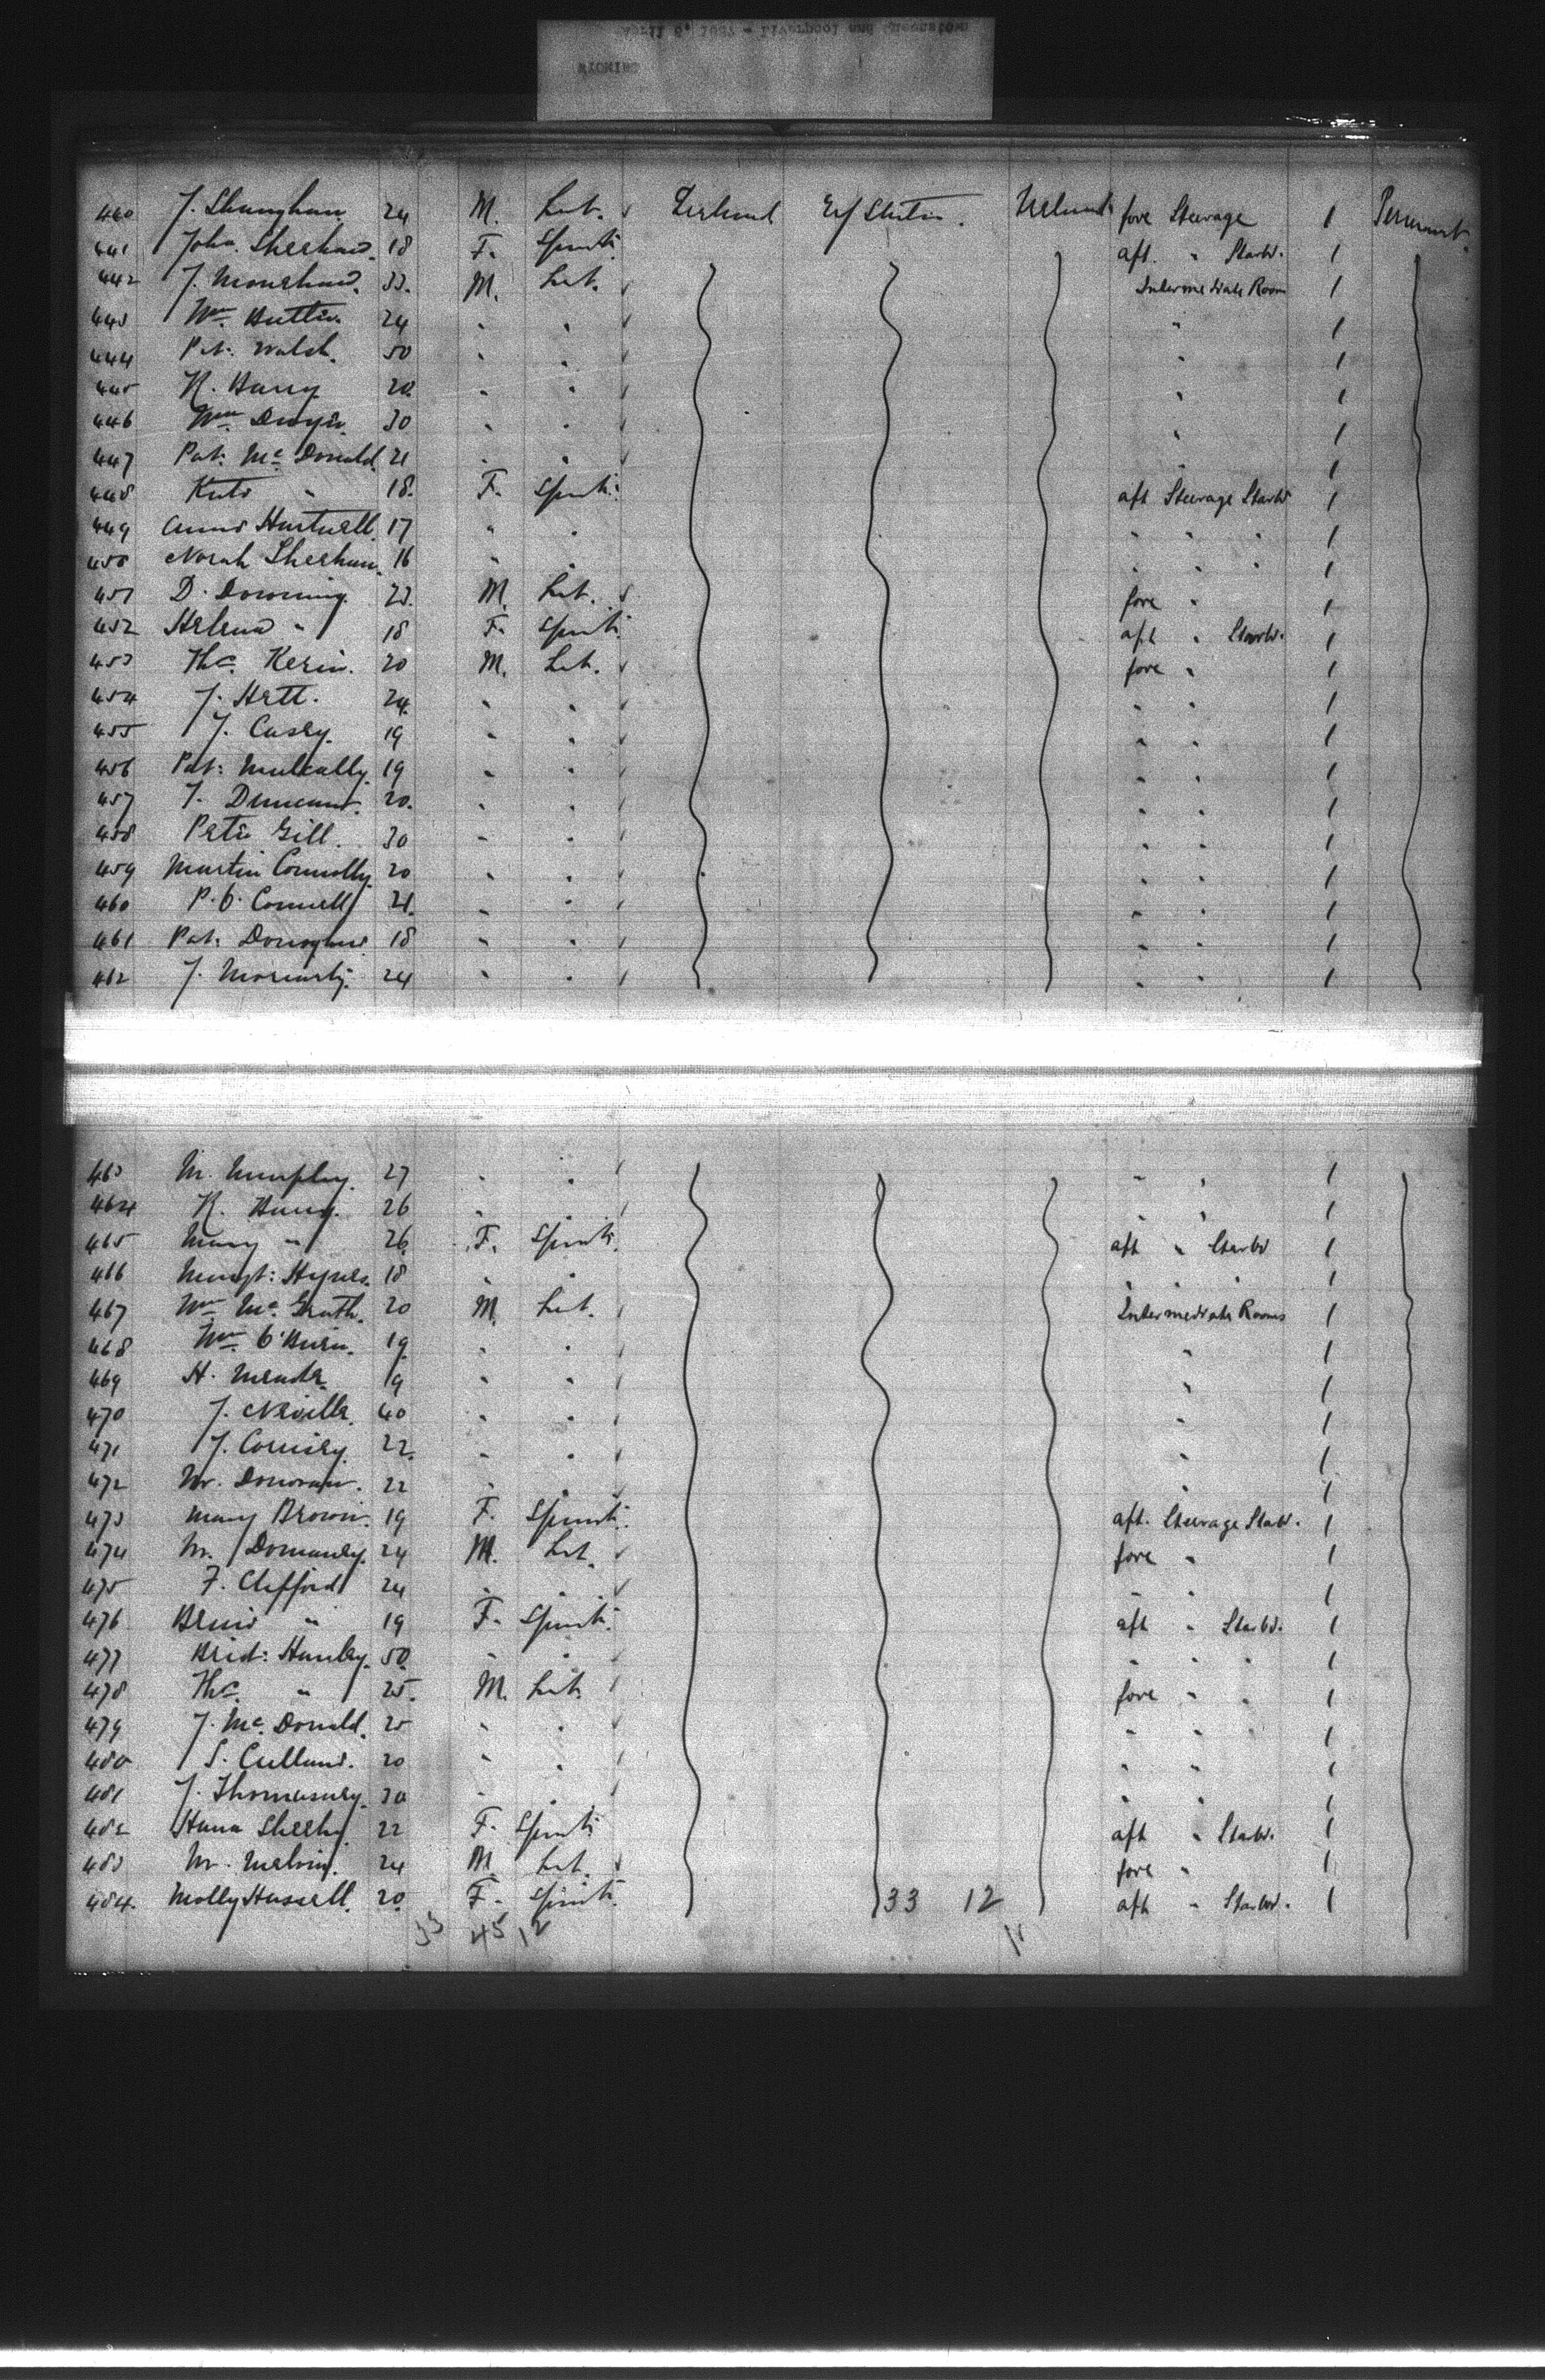 April 6, 1887 - Liverpool and Queenstown
WYOMING
440 J. Shanghan. 24 M. Lab. Ireland Ireland fore Steerage 1
441 Sheehand. 18 F. Spinst: aft. " Starbd. 1
442 J. 33. M. Lab. Intermediate Room 1
443 Wm. Butler. 24 " " " 1
444 Pat: Walsh. 50 " " " 1
445 R. Barry 20. " " " 1
446 Wm. Dwyer. 30 " " " 1
447 Pat: Mc Donald. 21 " " " 1
448 Kate " 18. F. Spinst: aft Steerage Starbd 1
449 Hartnell. 17 " " " " " 1
450 Norah Sheehan. 16 " " " " " 1
451 D. Downing. 23. M. Lab. fore " 1
452 Helena " 18 F. Spinst: aft " Starbd. 1
453 Thos. Kerin. 20 M. Lab. fore " 1
454 J. Hett. 24. " " " " 1
455 J. Casey. 19 " " " " 1
456 Pat: Mulcally. 19 " " " " 1
457 J. 20. " " " " 1
458 Peter Gill. 30 " " " " 1
459 Martin Connolly. 20 " " " " 1
460 P. O. Connell 21. " " " " 1
461 Pat: 18 " " " " 1
462 J. Moriarty. 24 " " " " 1
463 M. Murphy. 27 " " " " 1
464 R. Barry. 26 " " " " 1
465 Mary " 26. F. Spinst. aft " Starbd 1
466 Margt: Hynes. 18 " " " " " 1
467 Wm. Mc. Grath. 20 M. Lab. Intermediate Rooms 1
468 Wm. O'Brien. 19. " " " 1
469 H. Meade. 19 " " " 1
470 J. Neville. 40 " " " 1
471 J. 22. " " " 1
472 M. Donovan. 22 " " " 1
473 Mary Brown. 19 F. Spinst: aft. Steerage Starbd. 1
474 M. 24 M. Lab. fore " 1
475 F. Clifford 24 " " " " 1
476 " 19 F. Spinst: aft " Starbd. 1
477 Brid: Hanley. 50. " " " " " 1
478 Thos. " 25. M. Lab. fore " " 1
479 J. Mc. Donald. 25 " " " " " 1
480 S. 20 " " " " 1
481 J. 30 " " " " 1
482 Hana Sheehy. 22 F. Spinst: aft " Starbd. 1
483 M. 24 M. Lab. fore " 1
484. Molly Hassell. 20. F. Spinst: 33 12 aft " Starbd. 1
33 45 12